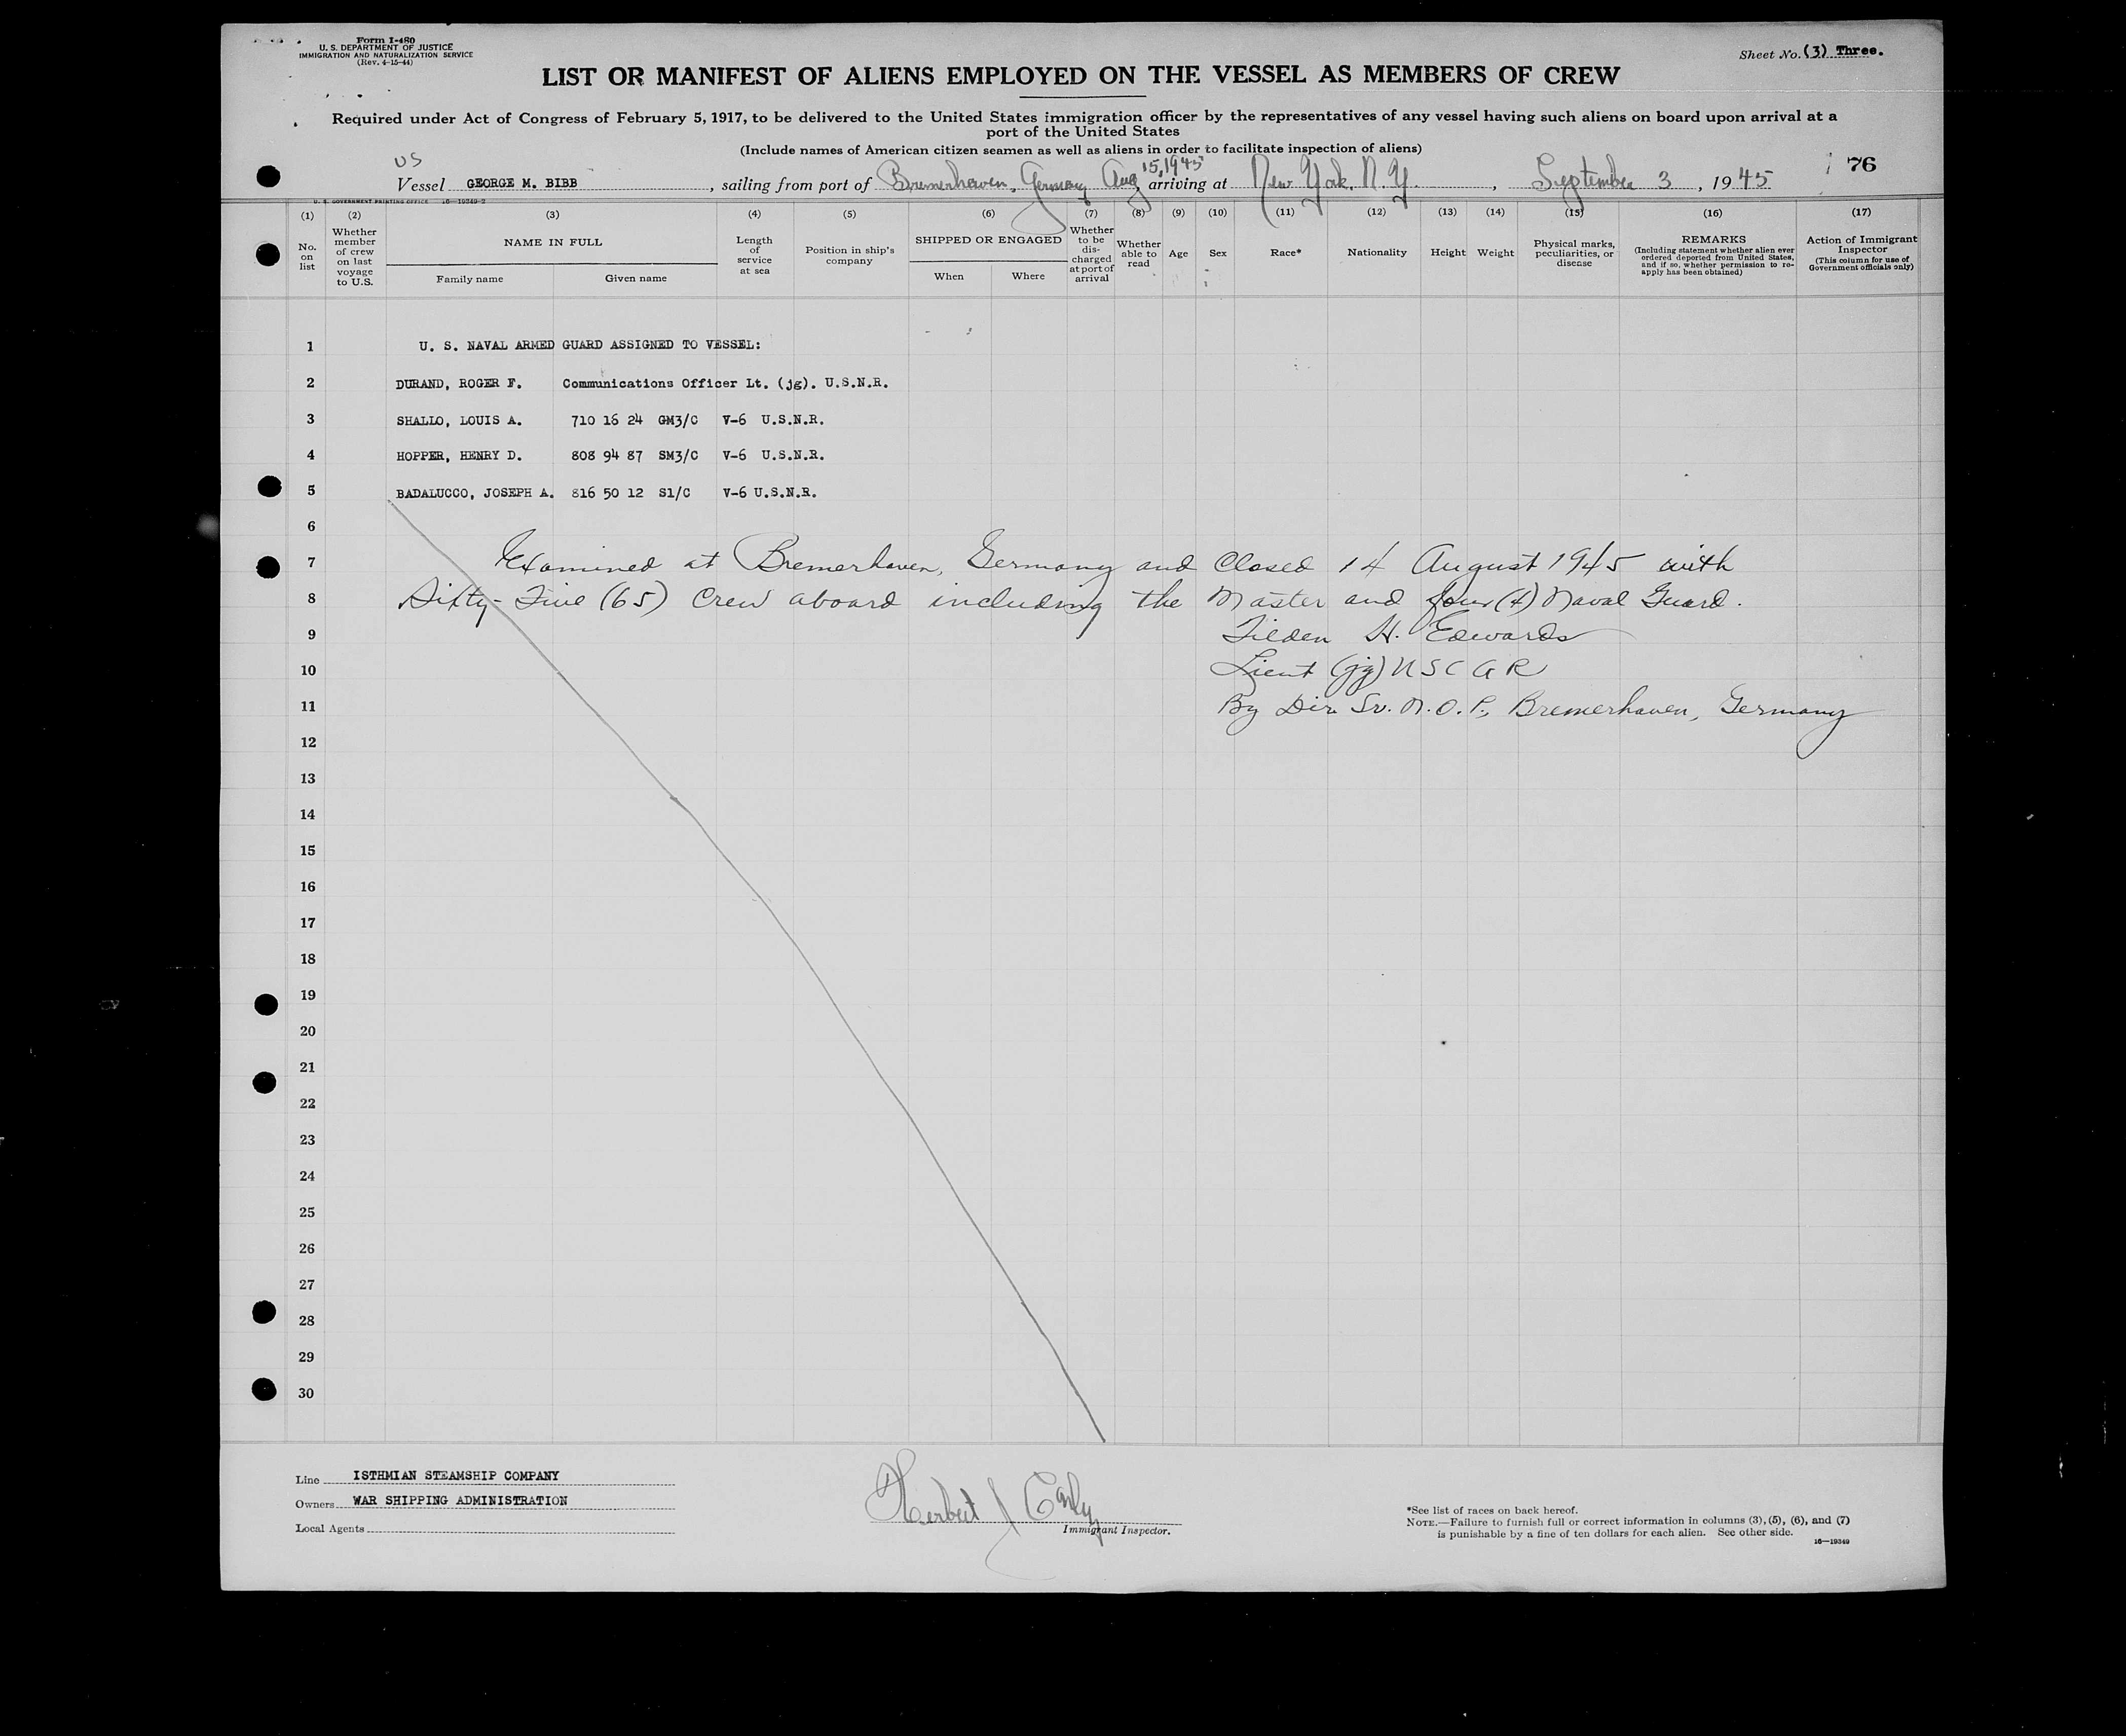 Form I-480
U. S. DEPARTMENT OF JUSTICE
IMMIGRATION AND NATURALIZATION SERVICE
(Rev. 4-15-44)
Sheet No. (3) Three.
LIST OR MANIFEST OF ALIENS EMPLOYED ON THE VESSEL AS MEMBERS OF CREW
Required under Act of Congress of February 5, 1917, to be delivered to the United States immigration officer by the representatives of any vessel having such aliens on board upon arrival at a
port of the United States
(Include names of American citizen seamen as well as aliens in order to facilitate inspection of aliens)
US
Vessel GEORGE M. BIBB, sailing from port of Bremerhaven, Germany Aug 15, 1945, arriving at New York, N.Y., September 3, 1945
76
U. S. GOVERNMENT PRINTING OFFICE 16—19349-2
(1) (2) (3) (4) (5) (6) (7) (8) (9) (10) (11) (12) (13) (14) (15) (16) (17)
No. on list
Whether member of crew on last voyage to U.S.
NAME IN FULL
Family name
Given name
Length of service at sea
Position in ship's company
SHIPPED OR ENGAGED
When
Where
Whether to be discharged at port of arrival
Whether able to read
Age
Sex
Race*
Nationality
Height
Weight
Physical marks, peculiarities, or disease
REMARKS
(Including statement whether alien ever ordered deported from United States, and if so, whether permission to re-apply has been obtained)
Action of Immigrant Inspector
(This column for use of Government officials only)
1 U. S. NAVAL ARMED GUARD ASSIGNED TO VESSEL:
2 DURAND, ROGER F. Communications Officer Lt. (jg). U.S.N.R.
3 SHALLO, LOUIS A. 710 16 24 GM3/C V-6 U.S.N.R.
4 HOPPER, HENRY D. 808 94 87 SM3/C V-6 U.S.N.R.
5 BADALUCCO, JOSEPH A. 816 50 12 S1/C V-6 U.S.N.R.
6
7 Examined at Bremerhaven, Germany and Closed 14 August 1945 with
8 Sixty-Five (65) Crew aboard including the Master and four (4) Naval Guard.
9 Tilden H. Edwards
10 Lieut (jg) USCGR
11 By Dir. Sr. N.O.P., Bremerhaven, Germany
12
13
14
15
16
17
18
19
20
21
22
23
24
25
26
27
28
29
30
Line ISTHMIAN STEAMSHIP COMPANY
Owners WAR SHIPPING ADMINISTRATION
Local Agents
Herbert J
Immigrant Inspector.
*See list of races on back hereof.
NOTE.—Failure to furnish full or correct information in columns (3), (5), (6), and (7)
is punishable by a fine of ten dollars for each alien. See other side.
16—19349